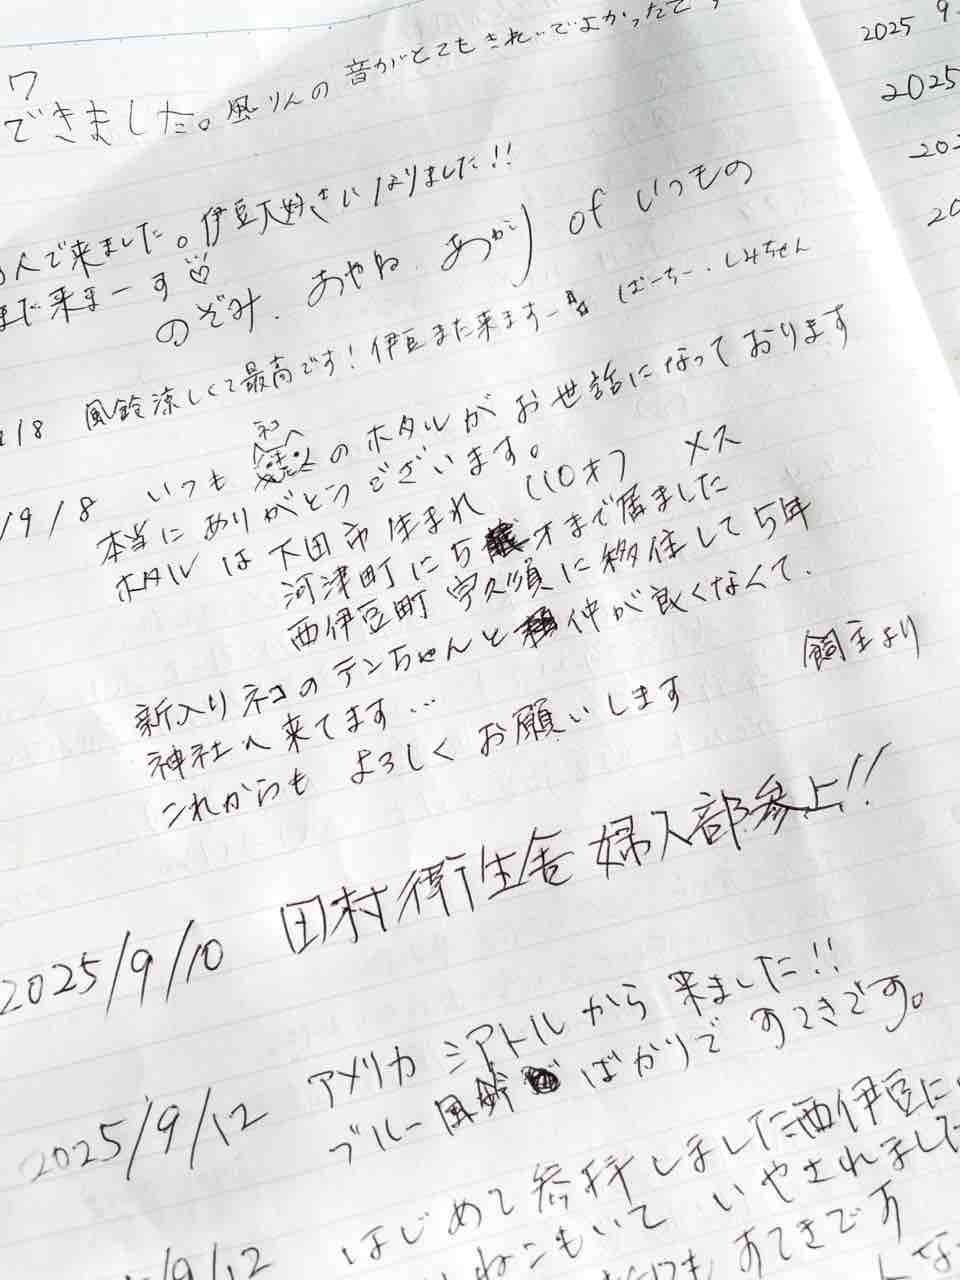 7
できました。風りんの音がとてもきれいでよかったです
人で来ました。伊豆大好きになりました!!
また来まーす♡
のぞみ、あやね、あかり of いつもの
/8 風鈴涼しくて最高です!伊豆また来ますー ばーちー、しみちゃん
/9/8 いつも ネコ のホタルがお世話になっております
本当にありがとうございます。
ホタルは下田市生まれ (10才) メス
河津町に5才まで居ました
西伊豆町 宇久須に移住して5年
新入りネコのテンちゃんと仲が良くなくて、
神社へ来てます…
これからも よろしくお願いします 飼主より
2025/9/10 田村衛生舎 婦人部参上!!
2025/9/12 アメリカ シアトルから来ました!!
ブルー風鈴ばかりですてきです。
/9/12 はじめて参拝しました西伊豆に
ねこもいていやされました
すてきです
2025 9
2025
202
20